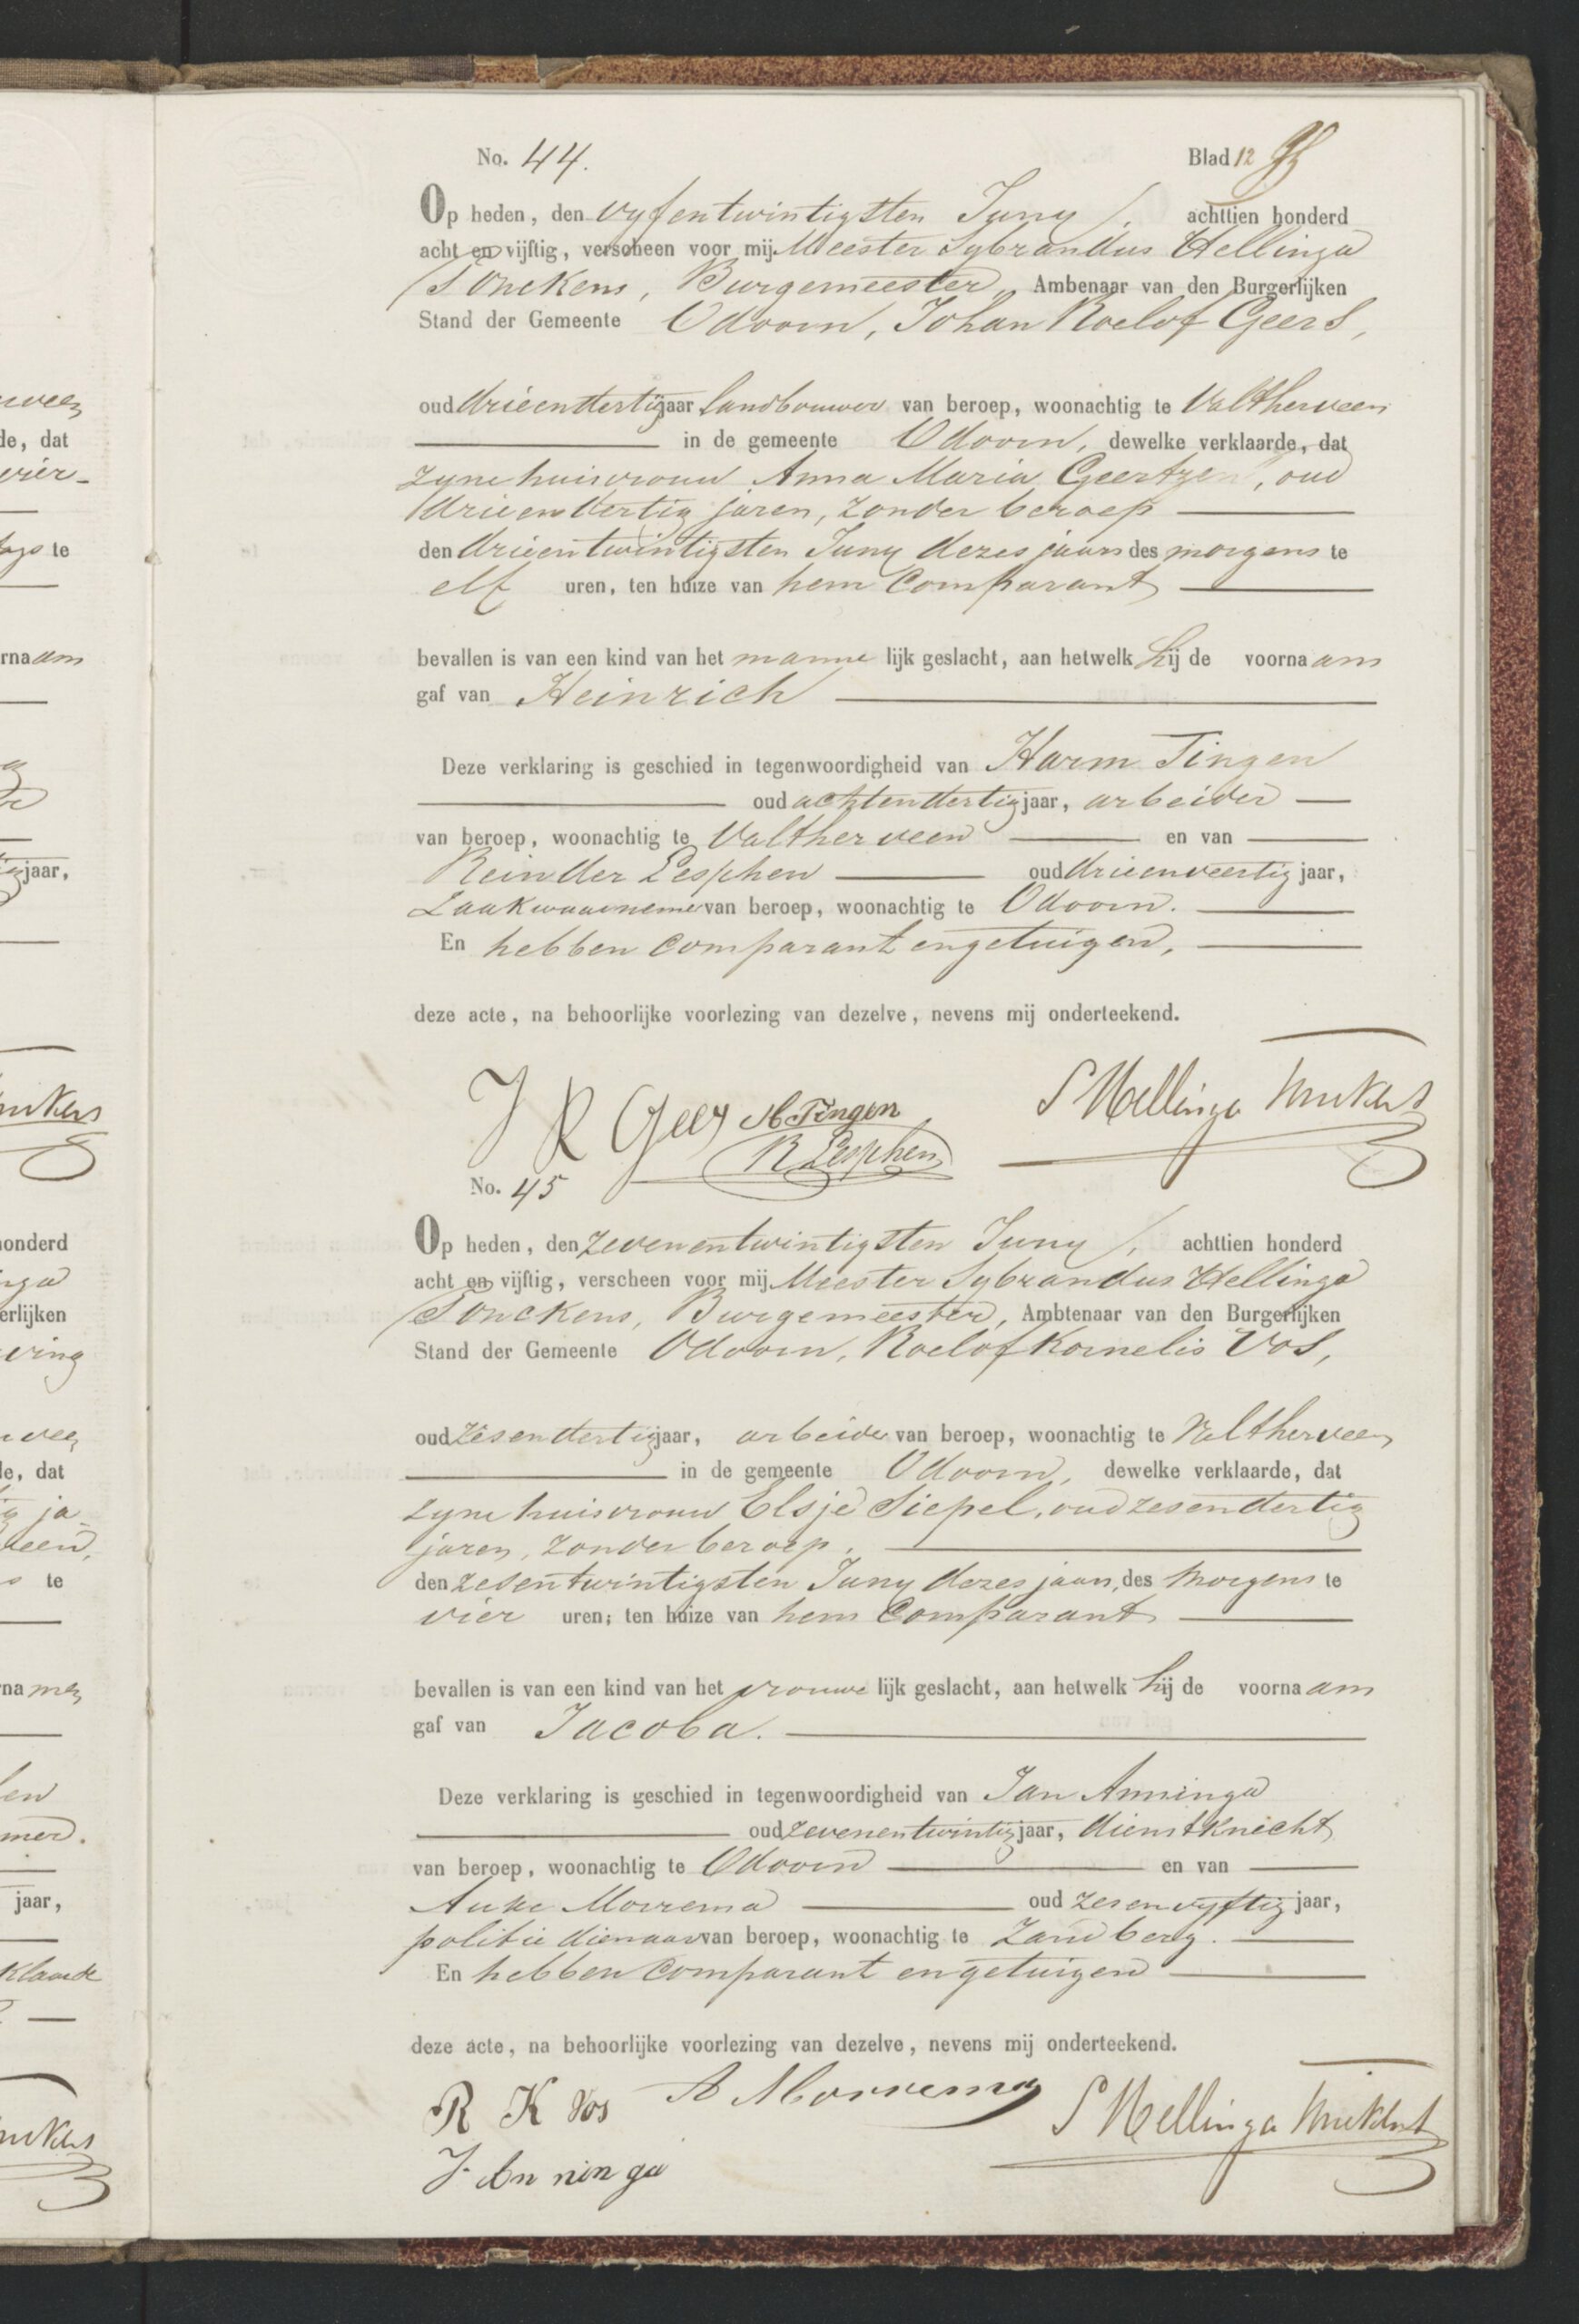 No. 44. Blad 12
Op heden, den vyfentwintigsten Juny /. achttien honderd
acht en vijftig, verscheen voor mij Meester Sybrandus Hellinga
Tonckens, Burgemeester, Ambenaar van den Burgerlijken
Stand der Gemeente Odoorn, Johan Roelof Geers,
oud drieendertig jaar, landbouwer van beroep, woonachtig te Valtherveen
in de gemeente Odoorn, dewelke verklaarde, dat
zyne huisvrouw Anna Maria Geertzen, oud
drieendertig jaren, zonder beroep
den drieentwintigsten Juny dezes jaars des morgens te
elf uren, ten huize van hem Comparant
bevallen is van een kind van het manne lijk geslacht, aan hetwelk hij de voornaam
gaf van Heinrich
Deze verklaring is geschied in tegenwoordigheid van Harm Tingen
oud achtendertig jaar, arbeider
van beroep, woonachtig te Valtherveen en van
Reinder Lesphen oud drieenveertig jaar,
Zaakwaarnemer van beroep, woonachtig te Odoorn.
En hebben Comparant en getuigen,
deze acte, na behoorlijke voorlezing van dezelve, nevens mij onderteekend.
J R Geers H Tingen S Hellinga Tonckens
R Lesphen
No. 45
Op heden, den zevenentwintigsten Juny /. achttien honderd
acht en vijftig, verscheen voor mij Meester Sybrandus Hellinga
Tonckens, Burgemeester, Ambtenaar van den Burgerlijken
Stand der Gemeente Odoorn, Roelof Kornelis Vos,
oud zesendertig jaar, arbeider van beroep, woonachtig te Valtherveen
in de gemeente Odoorn, dewelke verklaarde, dat
zyne huisvrouw Elsje Siepel, oud zesendertig
jaren, zonder beroep.
den zesentwintigsten Juny dezes jaars, des morgens te
vier uren; ten huize van hem Comparant
bevallen is van een kind van het vrouwe lijk geslacht, aan hetwelk hij de voornaam
gaf van Jacoba.
Deze verklaring is geschied in tegenwoordigheid van Jan Anninga
oud zevenentwintig jaar, dienstknecht
van beroep, woonachtig te Odoorn en van
Auke Morrema oud zesenvyftig jaar,
politie dienaar van beroep, woonachtig te Zandberg.
En hebben Comparant en getuigen
deze acte, na behoorlijke voorlezing van dezelve, nevens mij onderteekend.
R K Vos A Morrema S Hellinga Tonckens
J. An nin ga